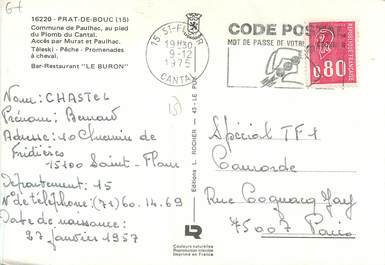 16220 - PRAT-DE-BOUC (15)
Commune de Paulhac, au pied
du Plomb du Cantal.
Accès par Murat et Paulhac.
Téleski - Pêche - Promenades
à cheval.
Bar-Restaurant "LE BURON"
Nom: CHASTEL
Prénom: Bernard
Adresse: 20 Chemin de
Fridières
15100 Saint-Flour
Département: 15
N° de téléphone: (71) 60.14.69
Date de naissance:
27 janvier 1957
15 ST-FLOUR
19H30
9-12
1975
CANTAL
CODE POSTAL
MOT DE PASSE DE VOTRE
0,80
Spécial TF1
Camorde
Rue Cognacq Jay
75007 Paris
Editions L. ROCHER - 43 - LE PUY
LR
Couleurs naturelles
Reproduction interdite
Imprimé en France